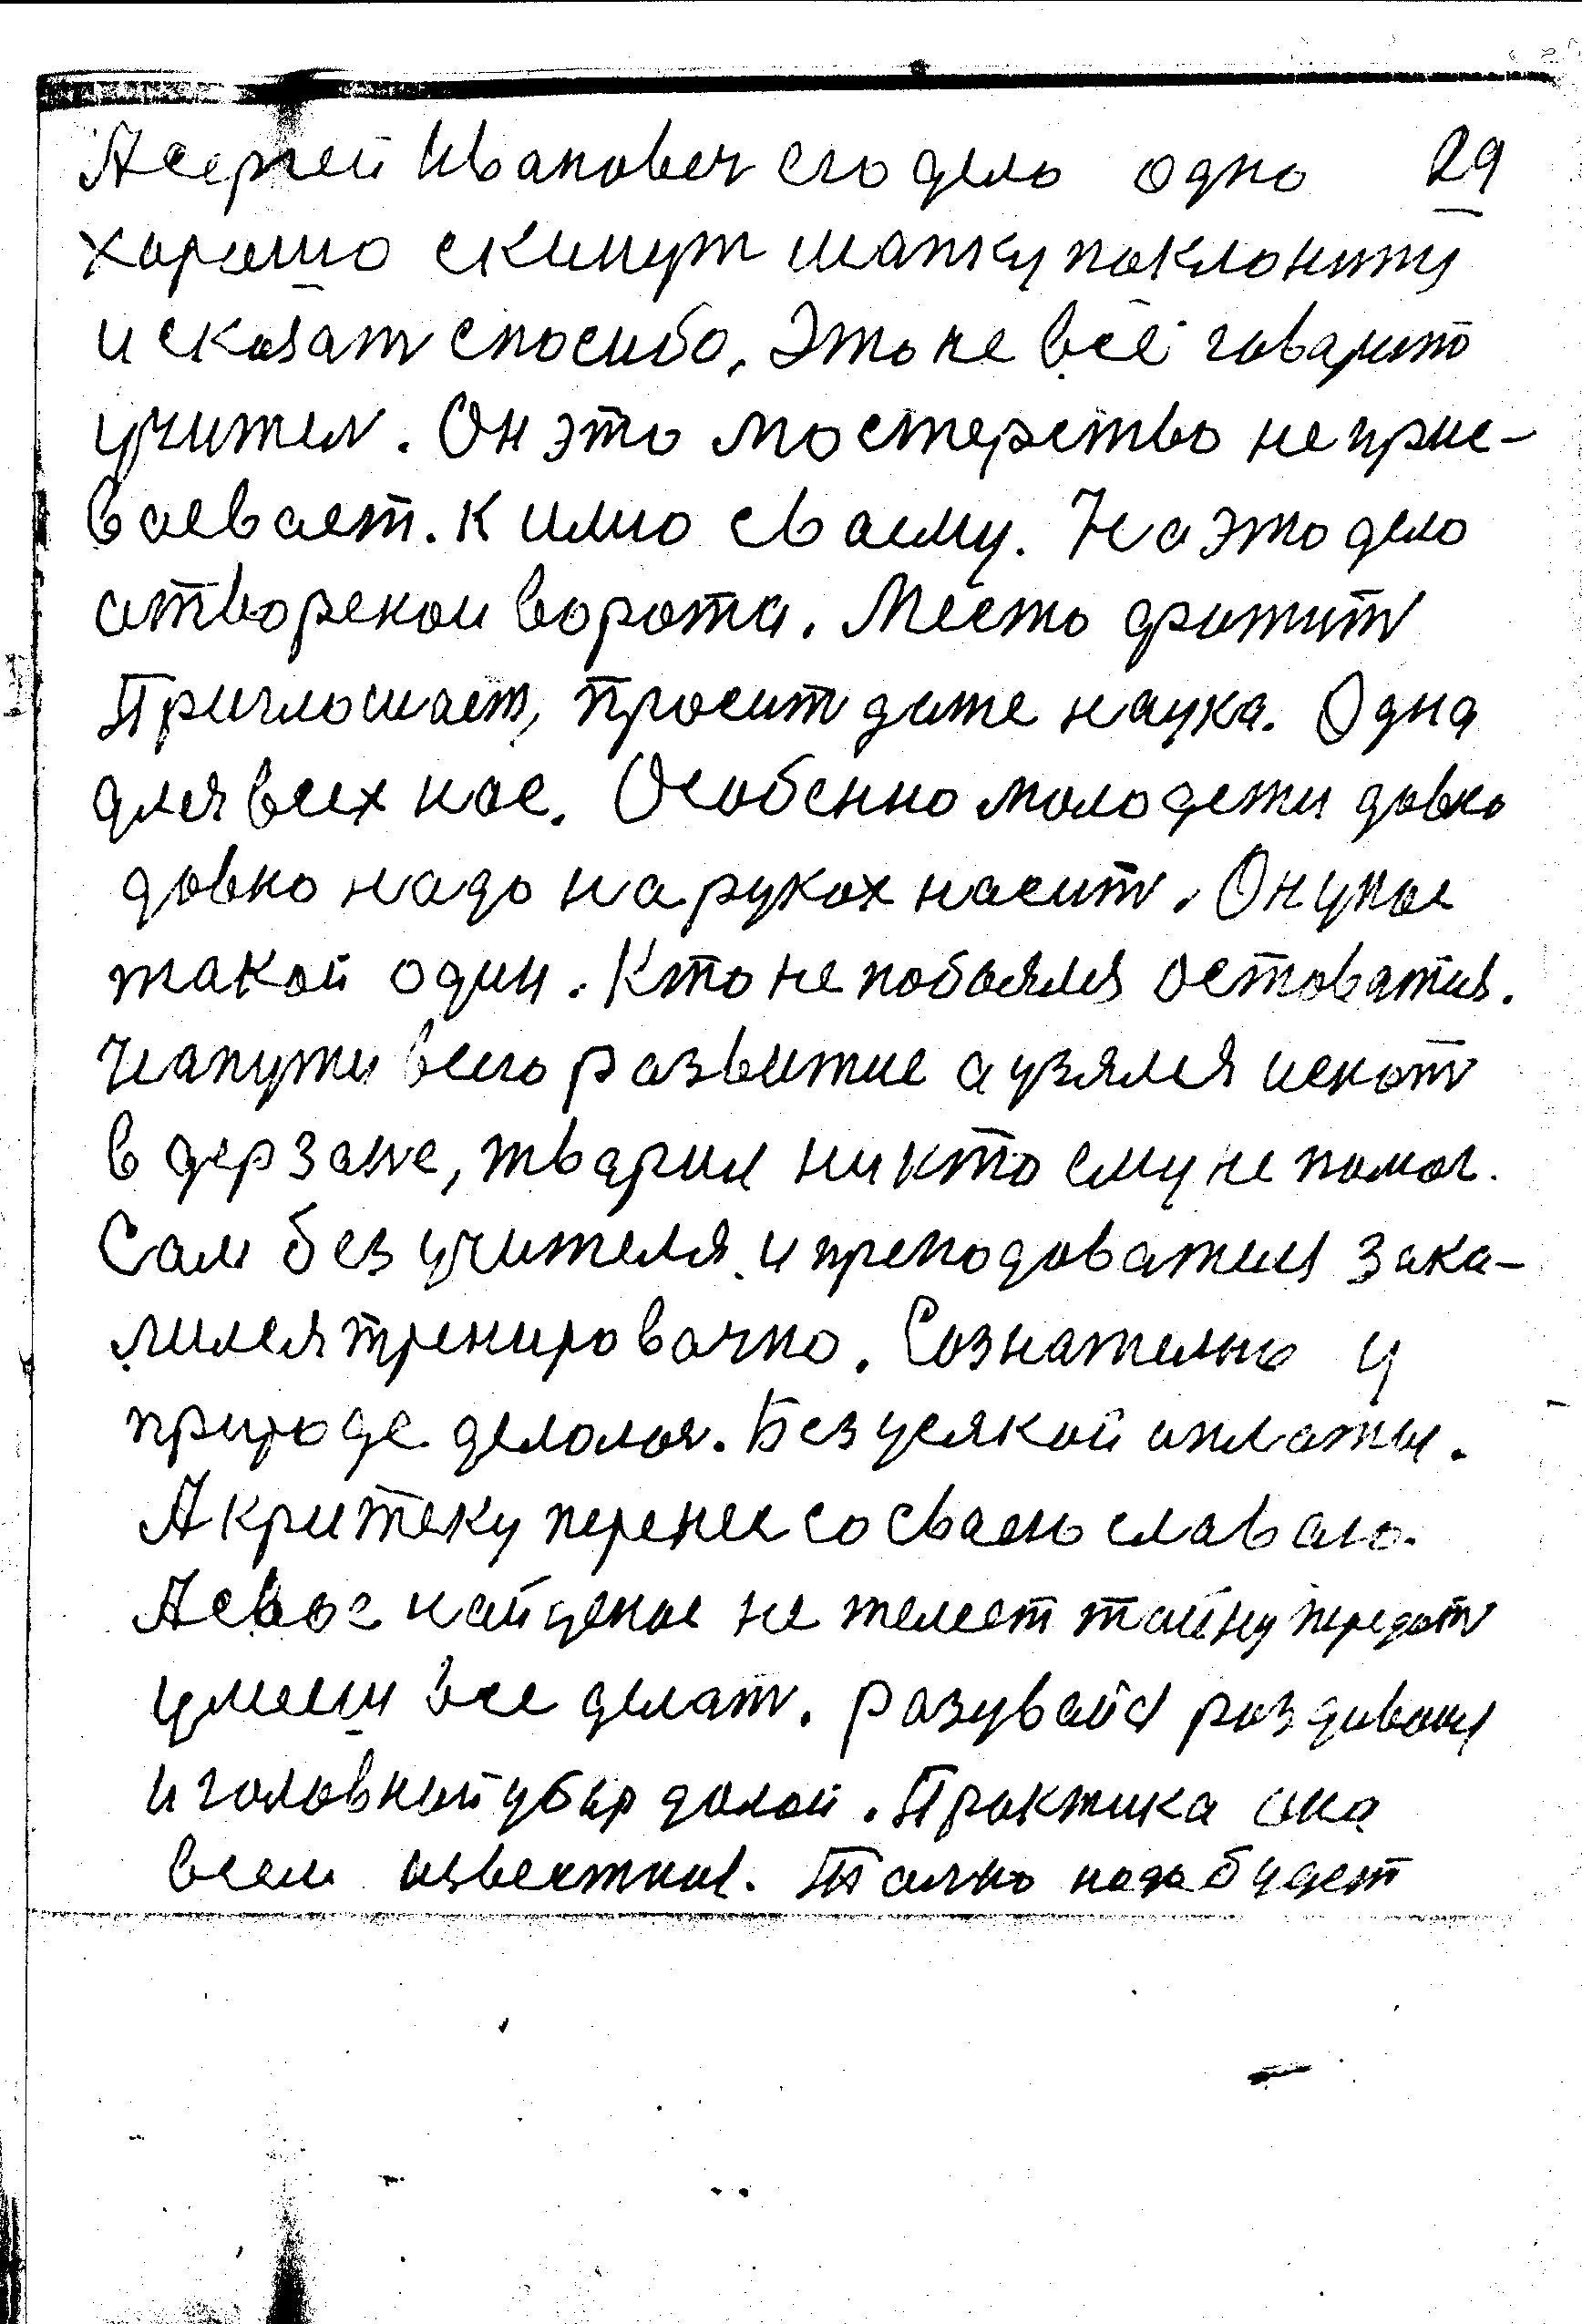 А сергей Иванович его дело одно 29
хорошо скинут шапку поклонитця
и сказат спосибо. Это не всё говарито
учител. Он это мостерство не прис-
воевает. к имю сваему. На это дело
атворенои ворота. Место фотит
Приглошает, просит даже наука. Одна
для всих нос. Особенно молодежи довно
довно надо на руках насит. Он у нос
такой один. Кто не побоялся остоватия.
На пути всего развитие а узялся искат
в дерзание, тварил никто ему не помог.
Сам без учителя и преподоватиля зака-
лился тренировачно. Сознателно у
природе делолоя. Без усякой аплоты.
А критеку перенес со сваею славаю.
А свое найденое не желеет тайну передат
умееш все делат. разувайся раздивайся
и головной убор долой. Практика она
всем известная. Толко надо будет